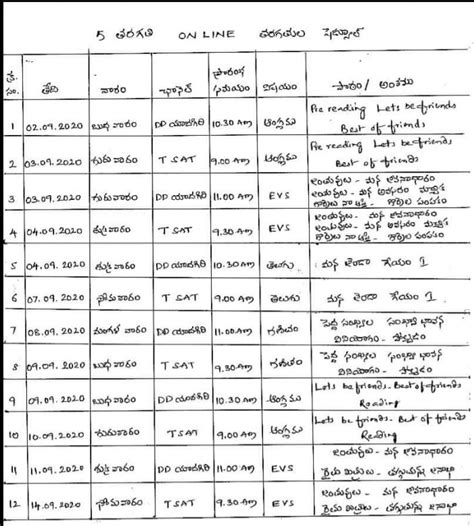 5 తరగతి ON LINE తరగతుల షెడ్యూల్
క్ర. సం. తేది వారం ఛానెల్ ప్రారంభ సమయం విషయం పాఠం/ అంశము
1 02.09.2020 బుధవారం DD యాదగిరి 10.30 Am ఆంగ్లము Pre reading Lets be friends
Best of friends
2 03.09.2020 గురువారం T SAT 9.00 Am ఆంగ్లము Pre reading Lets be friends
Best of friends
3 03.09.2020 గురువారం DD యాదగిరి 11.00 Am EVS జంతువులు - మన జీవనాధారం
4 04.09.2020 శుక్రవారం T SAT 9.30 Am EVS జంతువులు - మన జీవనాధారం
5 04.09.2020 శుక్రవారం DD యాదగిరి 10.30 Am తెలుగు మన జెండా గేయం 1
6 07.09.2020 సోమవారం T SAT 9.00 Am తెలుగు మన జెండా గేయం 1
7 08.09.2020 మంగళవారం DD యాదగిరి 11.00 Am గణితం పెద్ద సంఖ్యలు సంఖ్యా భావన
వినియోగం -
8 09.09.2020 బుధవారం T SAT 9.30 Am గణితం పెద్ద సంఖ్యలు సంఖ్యా భావన
వినియోగం -
9 09.09.2020 బుధవారం DD యాదగిరి 10.30 Am ఆంగ్లము Lets be friends - Best of friends
Reading
10 10.09.2020 గురువారం T SAT 9.00 Am ఆంగ్లము Lets be friends - Best of friends
Reading
11 11.09.2020 శుక్రవారం DD యాదగిరి 11.00 Am EVS జంతువులు - మన జీవనాధారం
రైతు మిత్రులు -
12 14.09.2020 సోమవారం T SAT 9.30 Am EVS జంతువులు - మన జీవనాధారం
రైతు మిత్రులు -